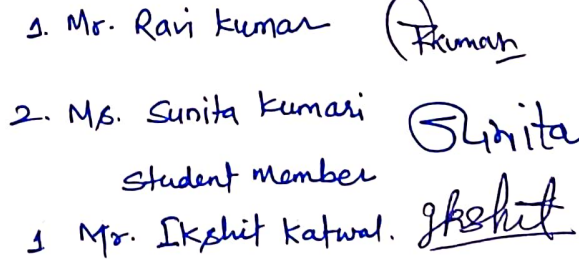 1. Mr. Ravi Kumar Rkumar
2. Ms. Sunita Kumari Sunita
Student Member
1 Mr. Ikshit Katwal. Ikshit